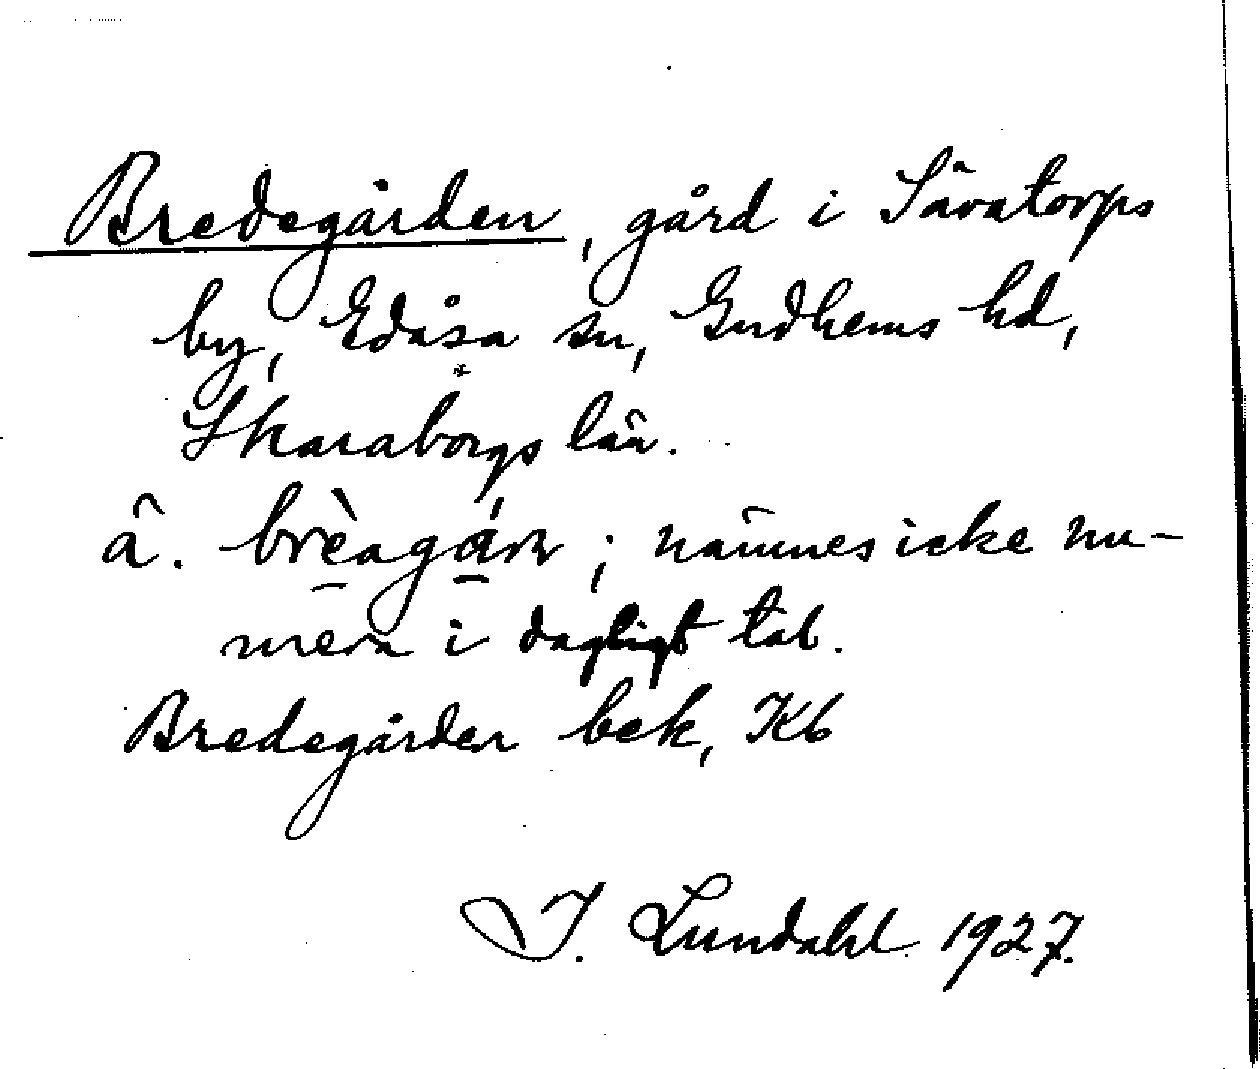 Bredegården, gård i Sävatorps
by, Edåsa sn, Gudhems hd,
Skaraborgs län.
â. brèagán; nämnes icke nu-
mera i dagligt tal.
Bredegården bek, Kb
I. Lundahl 1927.